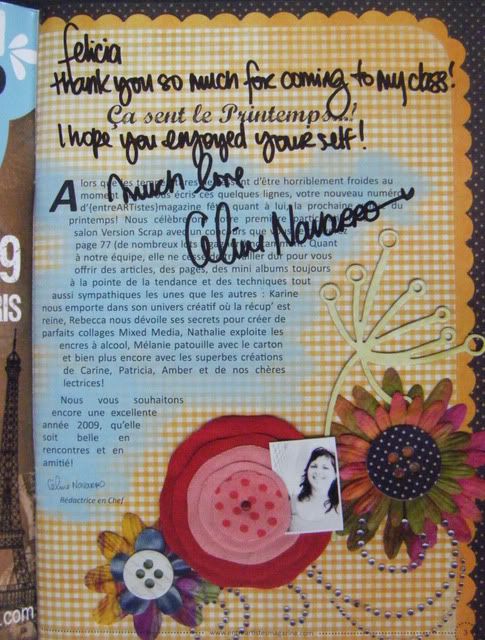 felicia
thank you so much for coming to my class!
Ça sent le Printemps...!
I hope you enjoyed yourself!
much love
Céline Navarro
Alors que les d'être horriblement froides au
moment écris ces quelques lignes, votre nouveau numéro
d'{entreARTistes}magazine quant à lui la prochaine du
printemps! Nous célébrerons premi
salon Version Scrap avec concours que
page 77 (de nombreux lots à gagner Quant
à notre équipe, elle ne cesse de travailler dur pour vous
offrir des articles, des pages, des mini albums toujours
à la pointe de la tendance et des techniques tout
aussi sympathiques les unes que les autres : Karine
nous emporte dans son univers créatif où la récup' est
reine, Rebecca nous dévoile ses secrets pour créer de
parfaits collages Mixed Media, Nathalie exploite les
encres à alcool, Mélanie patouille avec le carton
et bien plus encore avec les superbes créations
de Carine, Patricia, Amber et de nos chères
lectrices!
Nous vous souhaitons
encore une excellente
année 2009, qu'elle
soit belle en
rencontres et en
amitié!
Céline Navarro
Rédactrice en Chef
9
RIS
.com
www.entreartistesmagazine.com
3